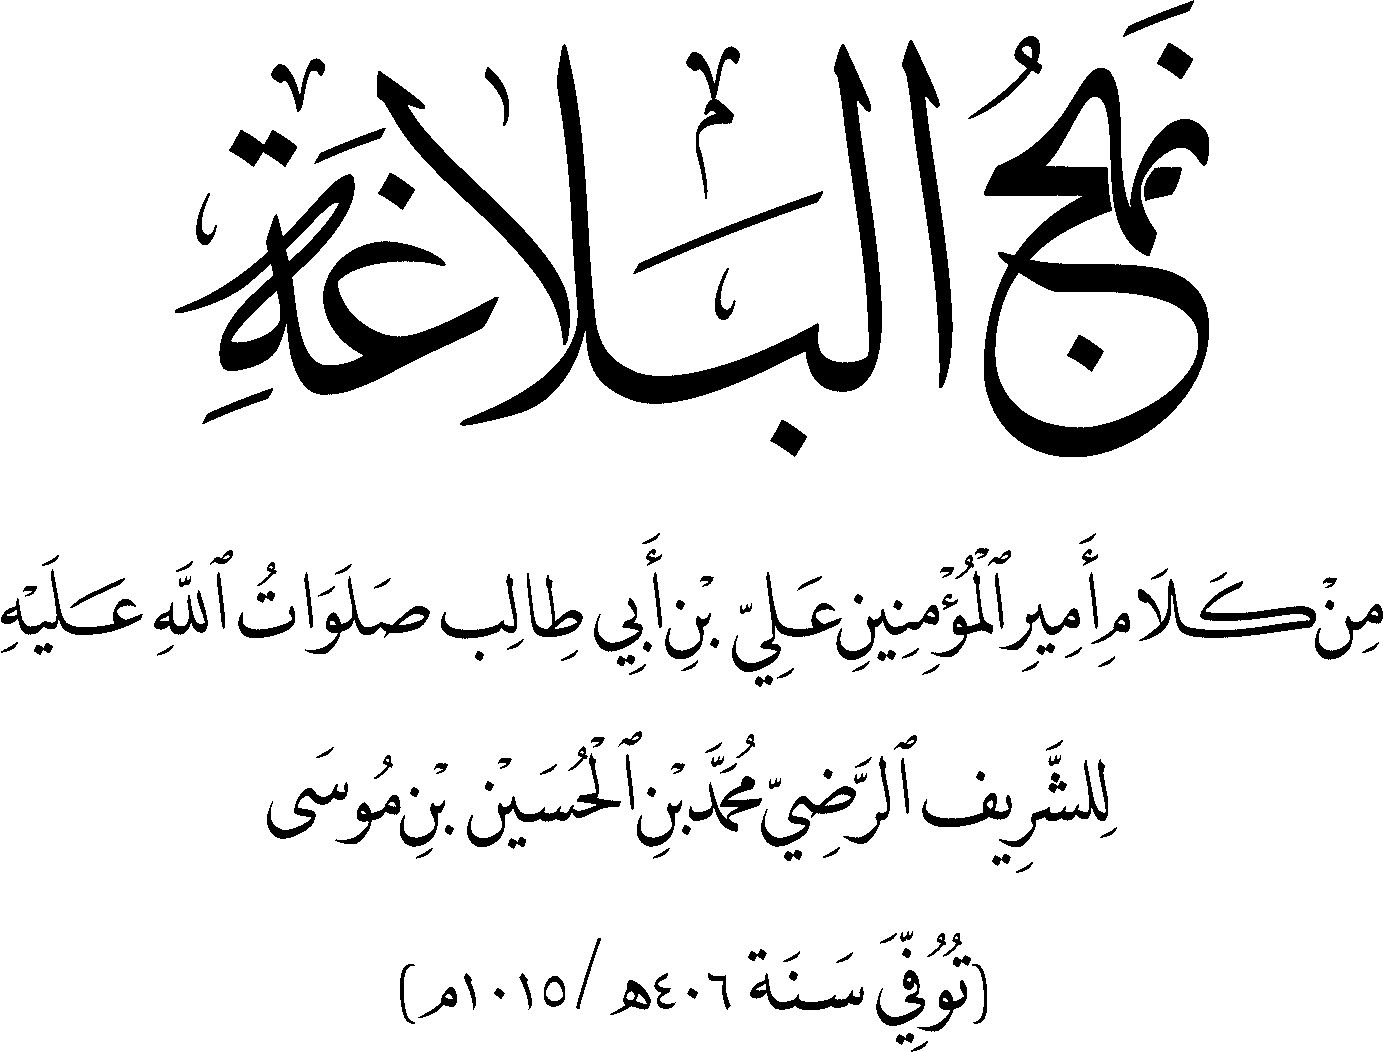 نَهْجُ البَلَاغَةِ
مِنْ كَلَامِ أَمِيرِ ٱلْمُؤْمِنِينِ عَلِيّ بْنِ أَبِي طِالِب صَلَوَاتُ ٱللَّهِ عَلَيْهِ
لِلشَّرِيف ٱلرَّضِيّ مُحَمَّد بْنِ ٱلْحُسَيْن بْنِ مُوسَى
(تُوُفِّيَ سَنَة ٤٠٦ھ /١٠١٥م)